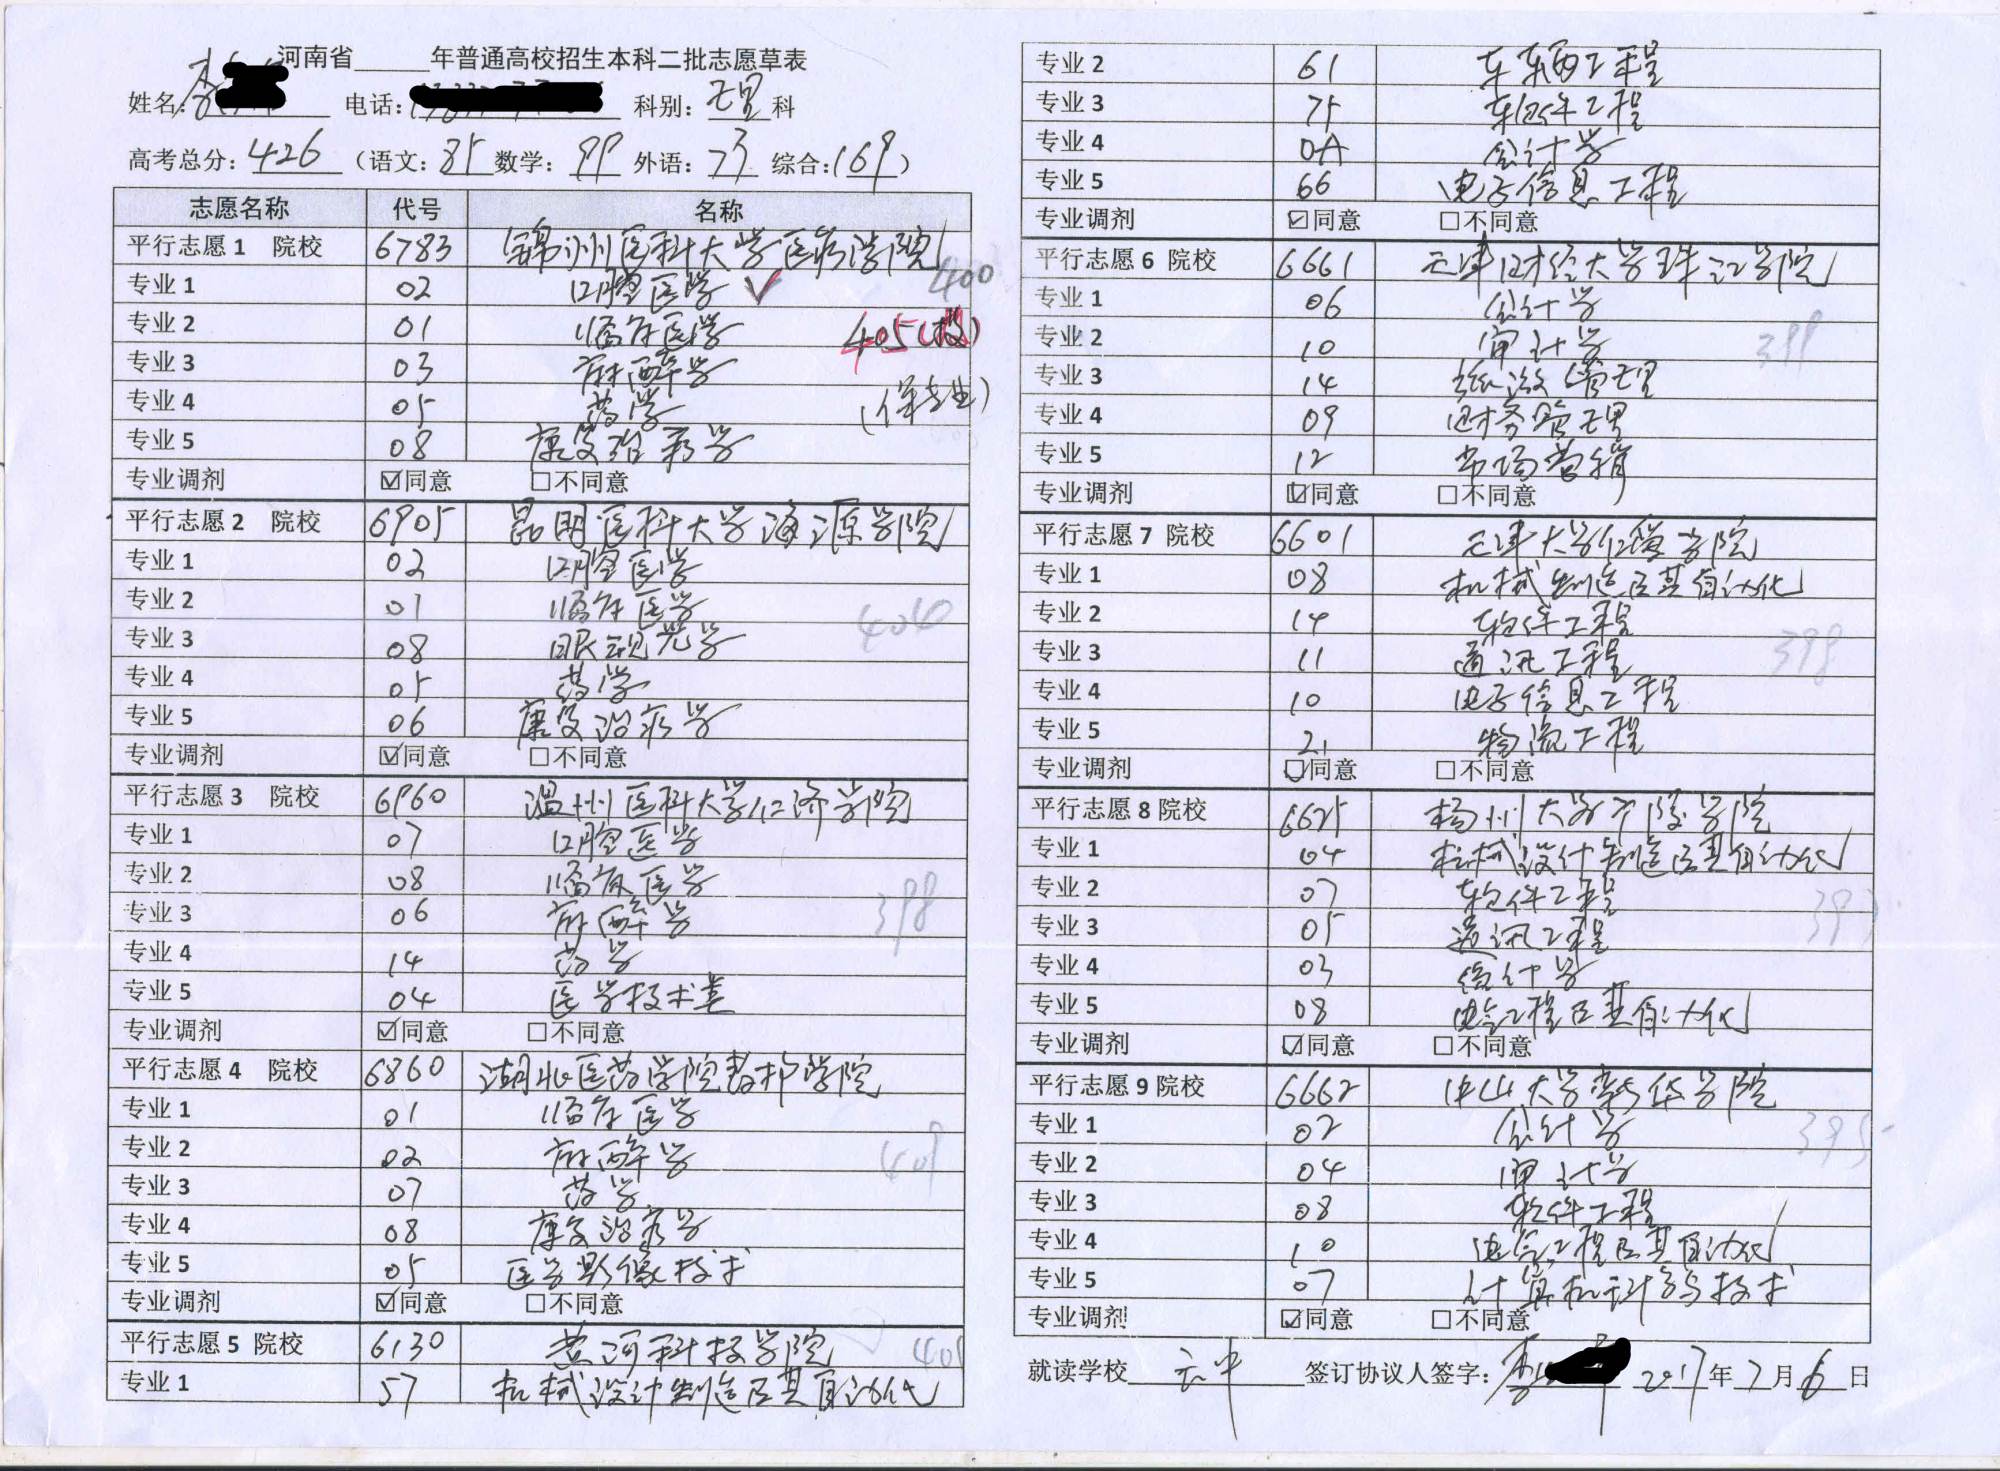 河南省______年普通高校招生本科二批志愿草表
姓名:李 电话: 科别:理科
高考总分:426 (语文:85 数学:99 外语:73 综合:169)
志愿名称 代号 名称
平行志愿1 院校 6783 锦州医科大学医疗学院 400
专业1 02 口腔医学 ✓
专业2 01 临床医学 405(投)
专业3 03 麻醉学
专业4 05 药学 (保专业)
专业5 08 康复治疗学
专业调剂 ☑同意 □不同意
平行志愿2 院校 6905 昆明医科大学海源学院
专业1 02 口腔医学
专业2 01 临床医学 404
专业3 08 眼视光学
专业4 05 药学
专业5 06 康复治疗学
专业调剂 ☑同意 □不同意
平行志愿3 院校 6960 温州医科大学仁济学院
专业1 07 口腔医学
专业2 08 临床医学
专业3 06 麻醉学 398
专业4 14 药学
专业5 04 医学技术类
专业调剂 ☑同意 □不同意
平行志愿4 院校 6860 湖北医药学院药护学院
专业1 01 临床医学
专业2 02 麻醉学 409
专业3 07 药学
专业4 08 康复治疗学
专业5 05 医学影像技术
专业调剂 ☑同意 □不同意
平行志愿5 院校 6130 黄河科技学院
专业1 57 机械设计制造及其自动化
专业2 61 车辆工程
专业3 75 软件工程
专业4 0A 会计学
专业5 66 电子信息工程
专业调剂 ☑同意 □不同意
平行志愿6 院校 6661 天津财经大学珠江学院
专业1 06 会计学
专业2 10 审计学 399
专业3 14 管理
专业4 09 财务管理
专业5 12 市场营销
专业调剂 ☑同意 □不同意
平行志愿7 院校 6601 天津大学仁爱学院
专业1 08 机械制造及其自动化
专业2 14 软件工程
专业3 11 通讯工程 398
专业4 10 电子信息工程
专业5 21 物流工程
专业调剂 ☑同意 □不同意
平行志愿8 院校 6625 扬州大学广陵学院
专业1 04 机械设计制造及其自动化
专业2 07 软件工程 393
专业3 05 通讯工程
专业4 03 会计学
专业5 08 电气工程及其自动化
专业调剂 ☑同意 □不同意
平行志愿9 院校 6662 中山大学新华学院
专业1 02 会计学 395
专业2 04 审计学
专业3 08 软件工程
专业4 10 电气工程及其自动化
专业5 07 计算机科学与技术
专业调剂 ☑同意 □不同意
就读学校 云中 签订协议人签字:李 2017年7月6日